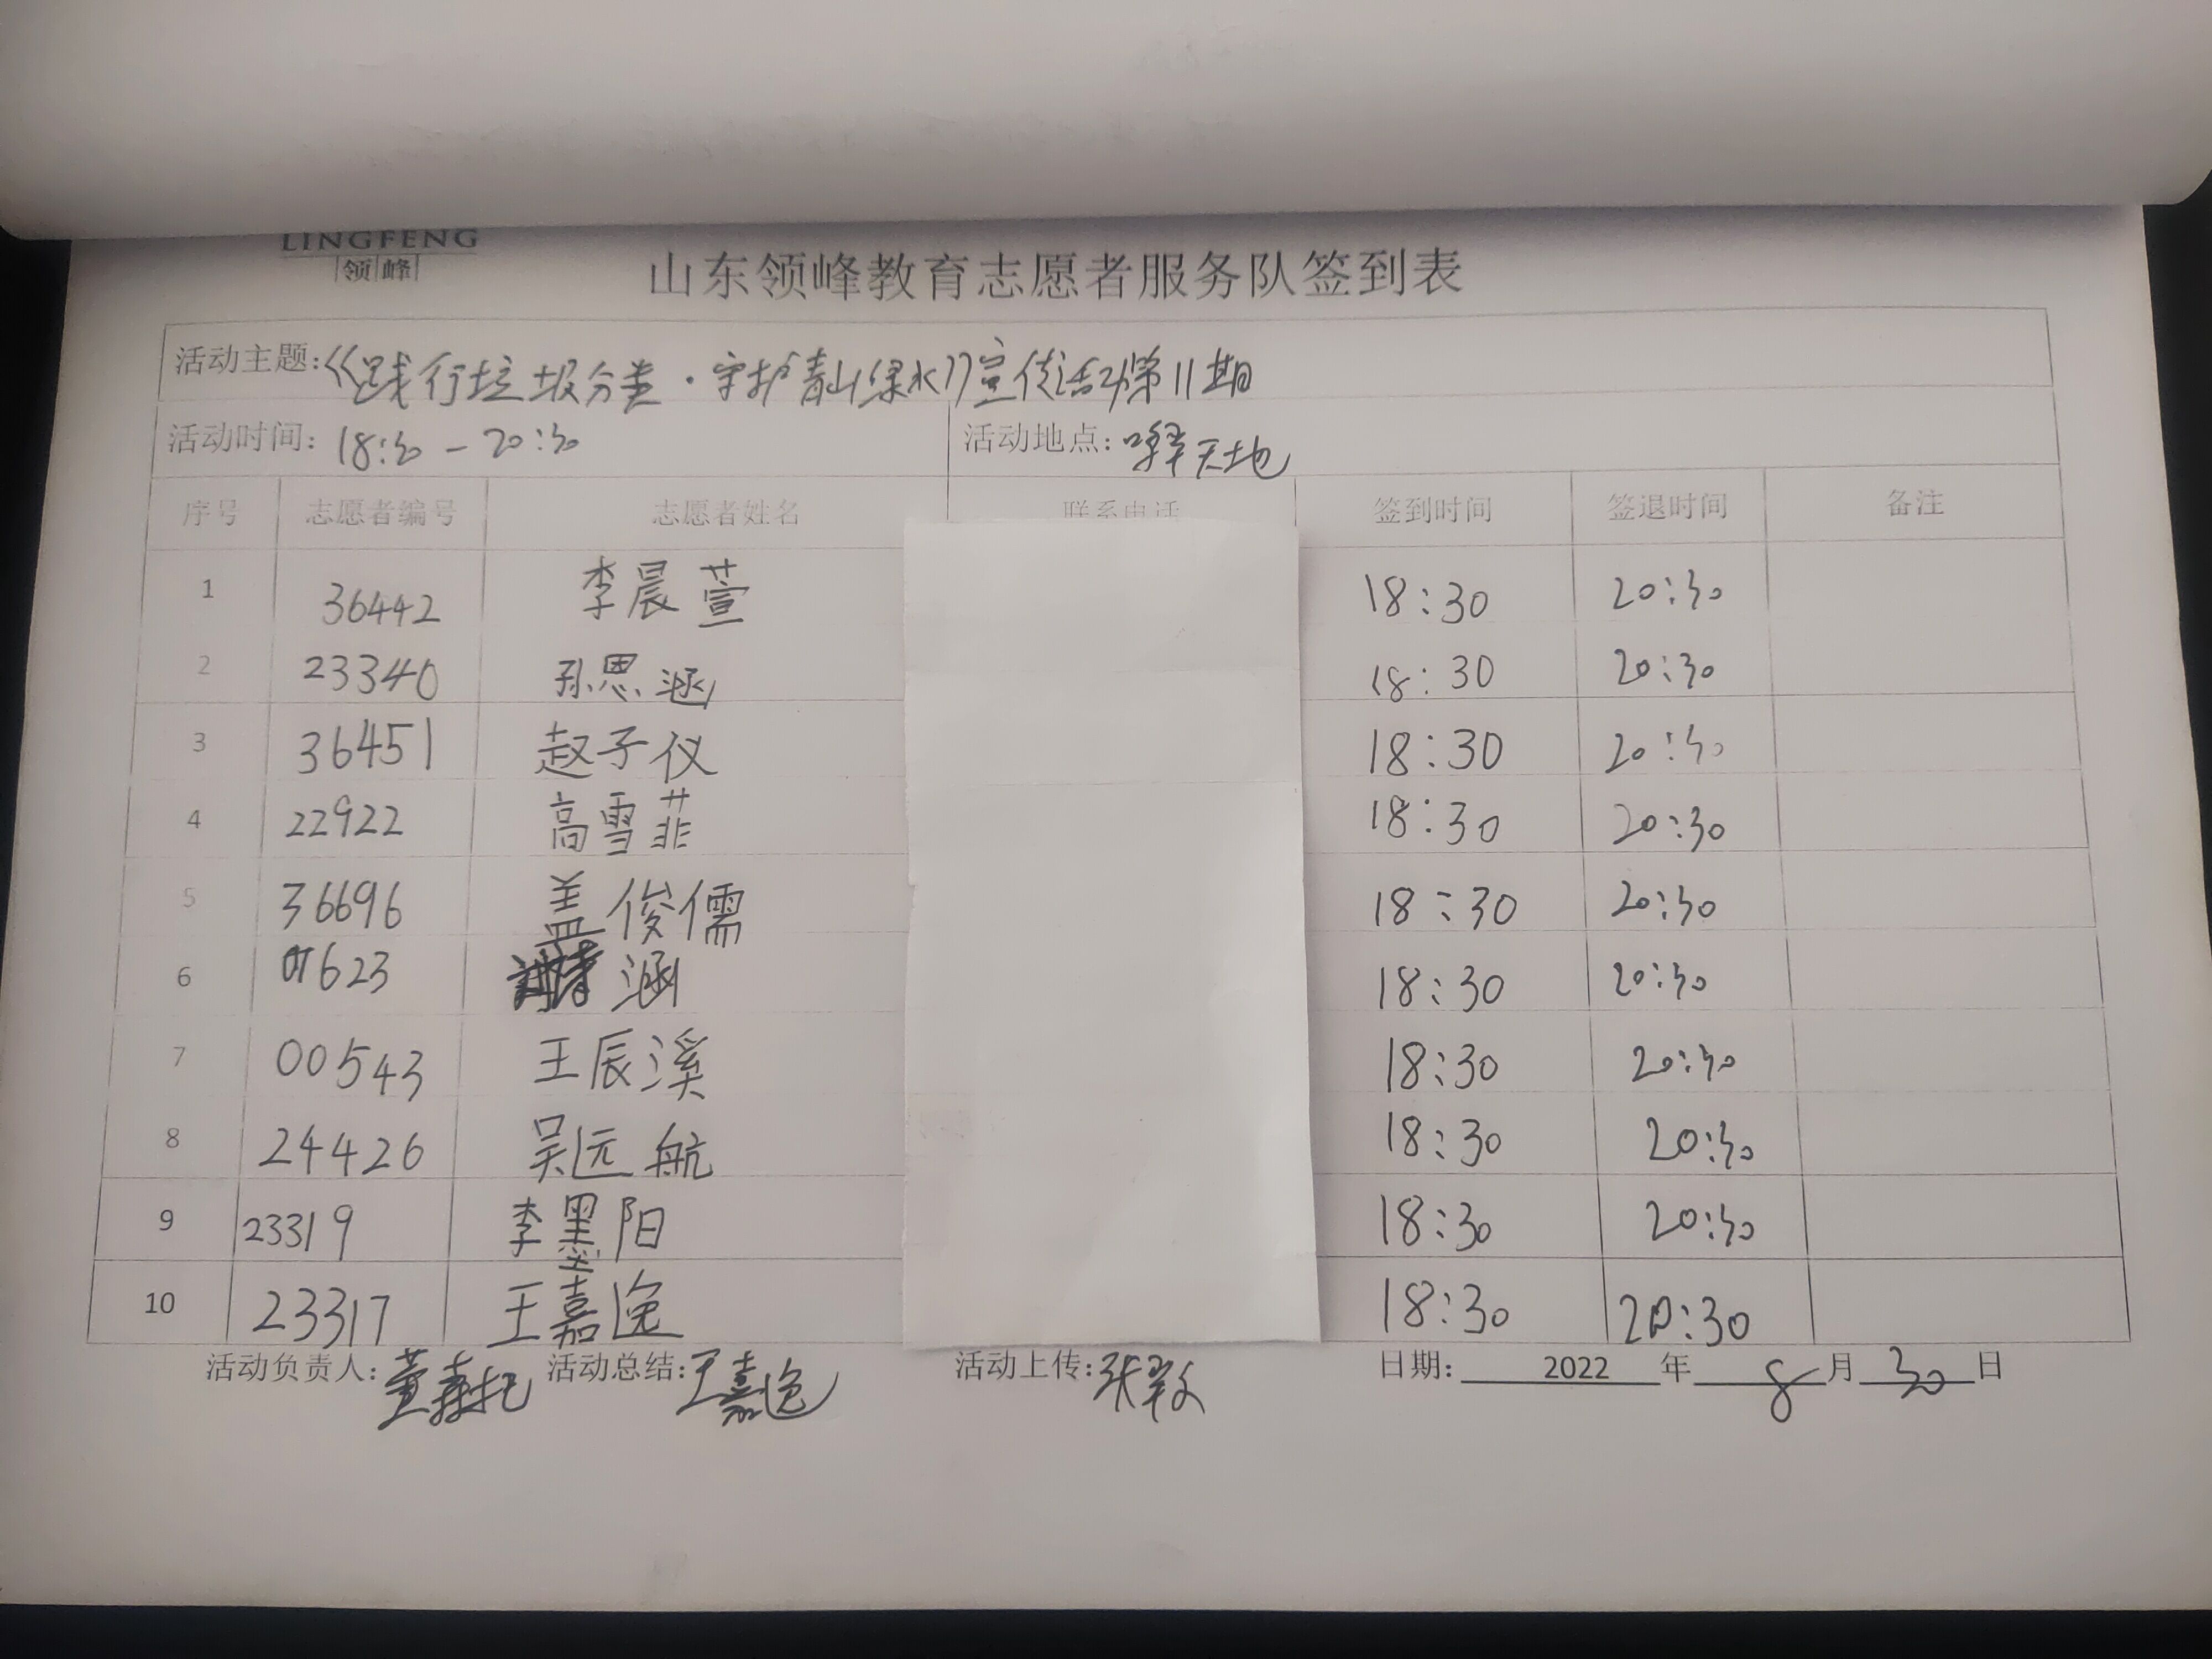 LINGFENG
领峰
山东领峰教育志愿者服务队签到表
活动主题:《践行垃圾分类·守护青山绿水》宣传活动第11期
活动时间: 18:30-20:30 活动地点: 天地
序号 志愿者编号 志愿者姓名 联系电话 签到时间 签退时间 备注
1 36442 李晨萱 18:30 20:30
2 23340 孙思涵 18:30 20:30
3 36451 赵子仪 18:30 20:30
4 22922 高雪菲 18:30 20:30
5 36696 盖俊儒 18:30 20:30
6 01623 涵 18:30 20:30
7 00543 王辰溪 18:30 20:30
8 24426 吴远航 18:30 20:30
9 23319 李墨阳 18:30 20:30
10 23317 王嘉逸 18:30 20:30
活动负责人: 董 活动总结: 王嘉逸 活动上传: 张 日期: 2022 年 8 月 30 日